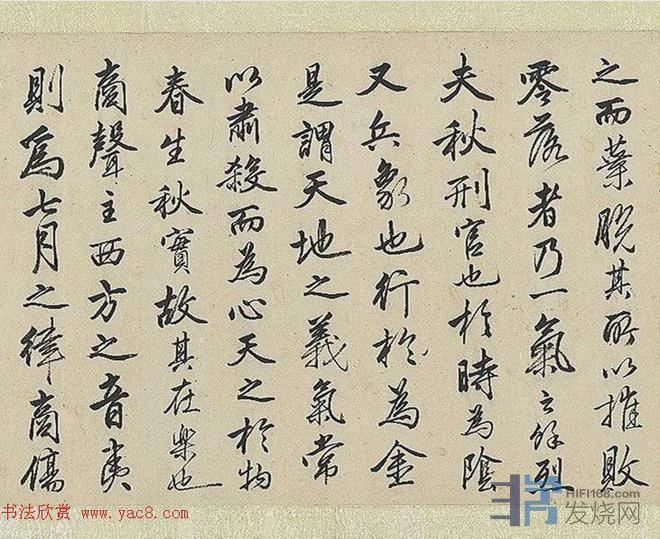 之而葉脫其所以摧敗
零落者乃一氣之餘烈
夫秋刑官也於時為陰
又兵象也行於為金
是謂天地之義氣常
以肅殺而為心天之於物
春生秋實故其在樂也
商聲主西方之音夷
則為七月之律商傷
书法欣赏 www.yac8.com
HIFI168.com
发烧网